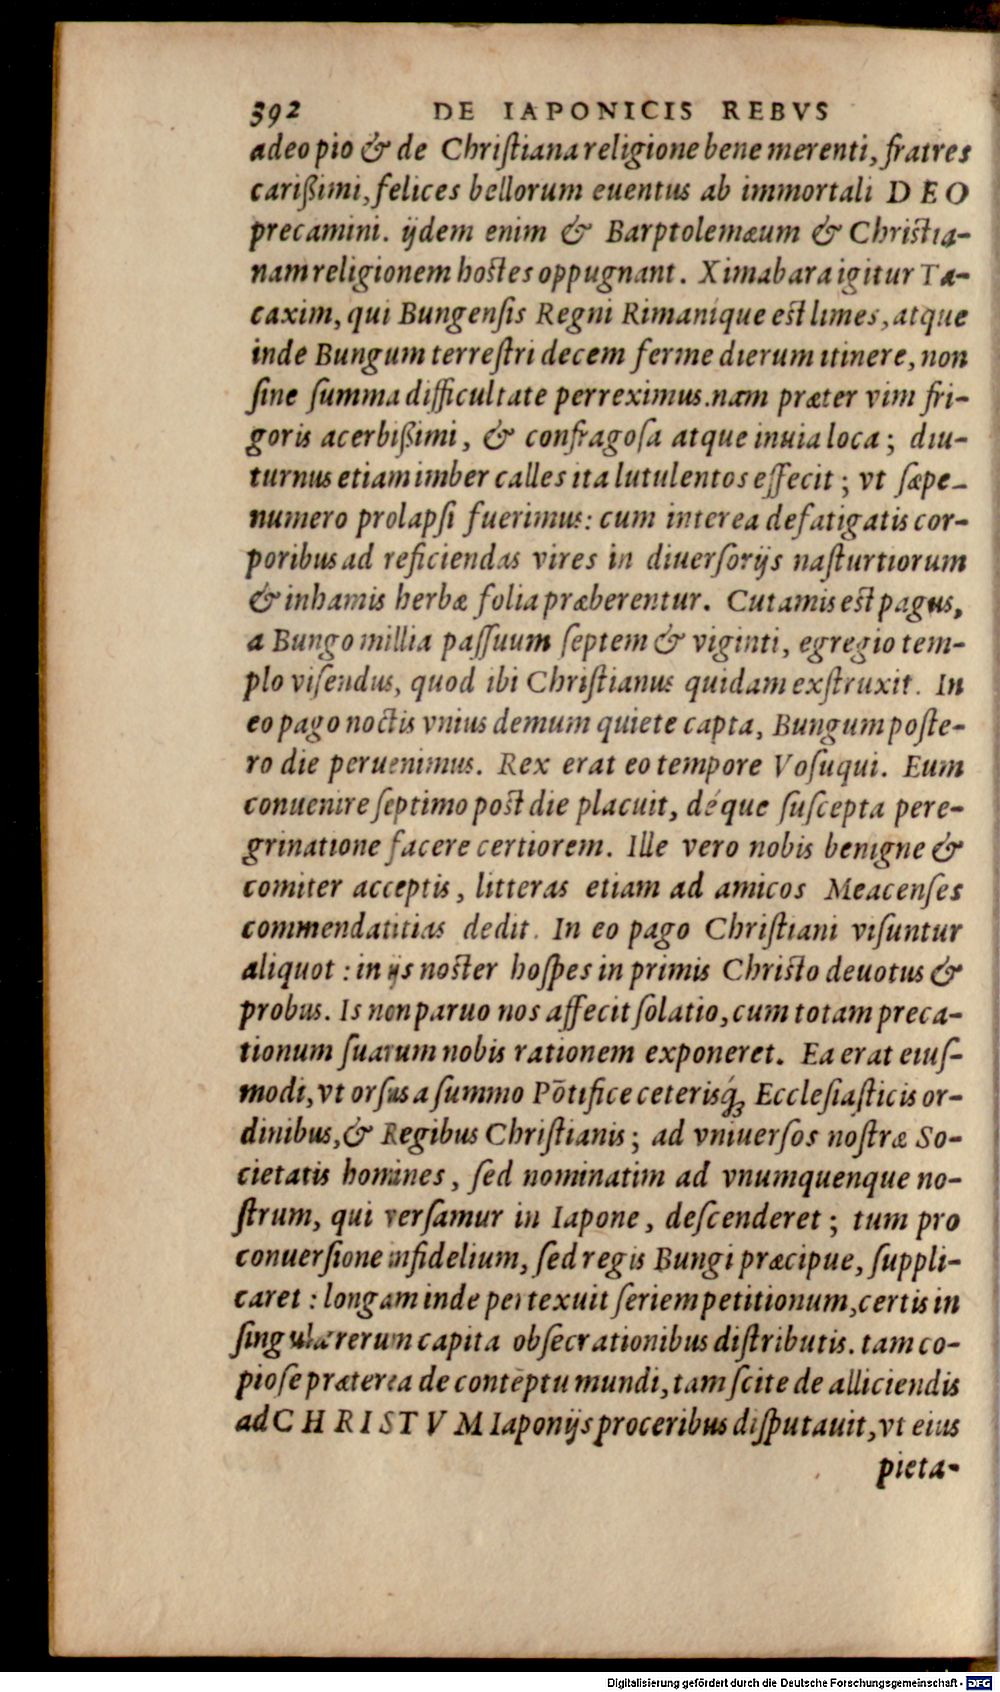 392 DE IAPONICIS REBVS
adeo pio & de Chriſtiana religione bene merenti, fratres
carißimi, felices bellorum euentus ab immortali DEO
precamini. ijdem enim & Barptolemæum & Chriſtia-
nam religionem hoſtes oppugnant. Ximabara igitur Ta-
caxim, qui Bungenſis Regni Rimaníque eſt limes, atque
inde Bungum terreſtri decem ferme dierum itinere, non
ſine ſumma difficultate perreximus. nam præter vim fri-
goris acerbißimi, & confragoſa atque inuia loca; diu-
turnus etiam imber calles ita lutulentos effecit; vt ſæpe-
numero prolapſi fuerimus: cum interea defatigatis cor-
poribus ad reficiendas vires in diuerſorijs naſturtiorum
& inhamis herbæ folia præberentur. Cutamis eſt pagus,
a Bungo millia paſſuum ſeptem & viginti, egregio tem-
plo viſendus, quod ibi Chriſtianus quidam exſtruxit. In
eo pago noctis vnius demum quiete capta, Bungum poſte-
ro die peruenimus. Rex erat eo tempore Voſuqui. Eum
conuenire ſeptimo poſt die placuit, déque ſuſcepta pere-
grinatione facere certiorem. Ille vero nobis benigne &
comiter acceptis, litteras etiam ad amicos Meacenſes
commendatitias dedit. In eo pago Chriſtiani viſuntur
aliquot: in ijs noſter hoſpes in primis Chriſto deuotus &
probus. Is non paruo nos affecit ſolatio, cum totam preca-
tionum ſuarum nobis rationem exponeret. Ea erat eiuſ-
modi, vt orſus a ſummo Pōtifice ceterisq́; Eccleſiaſticis or-
dinibus, & Regibus Chriſtianis; ad vniuerſos noſtræ So-
cietatis homines, ſed nominatim ad vnumquenque no-
ſtrum, qui verſamur in Iapone, deſcenderet; tum pro
conuerſione infidelium, ſed regis Bungi præcipue, ſuppli-
caret: longam inde pertexuit ſeriem petitionum, certis in
ſingula rerum capita obſecrationibus diſtributis. tam co-
pioſe præterea de contēptu mundi, tam ſcite de alliciendis
ad CHRISTVM Iaponijs proceribus diſputauit, vt eius
pieta-
Digitalisierung gefördert durch die Deutsche Forschungsgemeinschaft - DFG